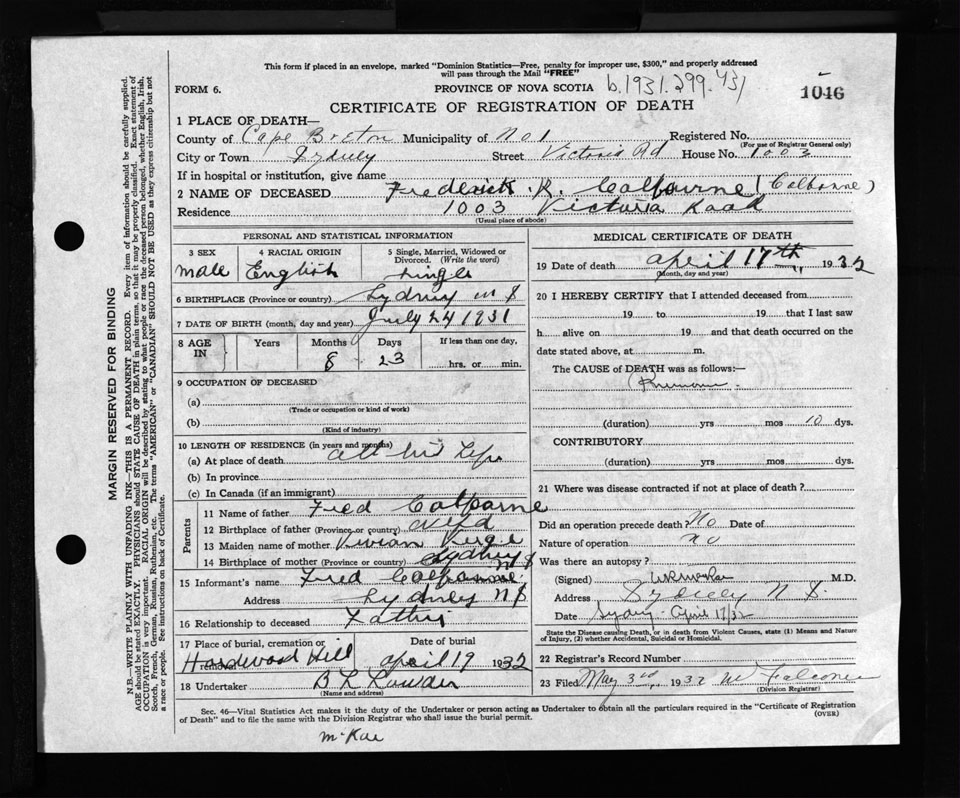 This form if placed in an envelope, marked "Dominion Statistics—Free, penalty for improper use, $300," and properly addressed
will pass through the Mail "FREE"
FORM 6. PROVINCE OF NOVA SCOTIA b.1931.299.431 1046
CERTIFICATE OF REGISTRATION OF DEATH
1 PLACE OF DEATH—
County of Cape Breton Municipality of No 1 Registered No.
(For use of Registrar General only)
City or Town Sydney Street Victoria Rd House No. 1003
If in hospital or institution, give name
2 NAME OF DECEASED Frederick R. Calbourne (Calbanne)
Residence 1003 Victoria Road
(Usual place of abode)
PERSONAL AND STATISTICAL INFORMATION
3 SEX 4 RACIAL ORIGIN 5 Single, Married, Widowed or
Divorced. (Write the word)
male English single
6 BIRTHPLACE (Province or country) Sydney N S
7 DATE OF BIRTH (month, day and year) July 24 1931
8 AGE IN Years Months Days If less than one day,
8 23 hrs. or min.
9 OCCUPATION OF DECEASED
(a)
(Trade or occupation or kind of work)
(b)
(Kind of industry)
10 LENGTH OF RESIDENCE (in years and months)
(a) At place of death all his Life
(b) In province
(c) In Canada (if an immigrant)
Parents
11 Name of father Fred Calbanne
12 Birthplace of father (Province or country) Nfld
13 Maiden name of mother Vivian
14 Birthplace of mother (Province or country) Sydney N S
15 Informant's name Fred Calbanne
Address Sydney N S
16 Relationship to deceased Father
17 Place of burial, cremation or removal Date of burial
Hardwood Hill april 19 1932
18 Undertaker B L
(Name and address)
MEDICAL CERTIFICATE OF DEATH
19 Date of death april 17th 1932
(Month, day and year)
20 I HEREBY CERTIFY that I attended deceased from
19 to 19 that I last saw
h alive on 19 and that death occurred on the
date stated above, at m.
The CAUSE of DEATH was as follows:—
Pneumonia
(duration) yrs mos 10 dys.
CONTRIBUTORY
(duration) yrs mos dys.
21 Where was disease contracted if not at place of death?
Did an operation precede death? No Date of
Nature of operation no
Was there an autopsy?
(Signed) M.D.
Address Sydney N S.
Date Sydney April 17/32
State the Disease causing Death, or in death from Violent Causes, state (1) Means and Nature
of Injury, (2) whether Accidental, Suicidal or Homicidal.
22 Registrar's Record Number
23 Filed May 3rd 1932 W Falconer
(Division Registrar)
Sec. 46—Vital Statistics Act makes it the duty of the Undertaker or person acting as Undertaker to obtain all the particulars required in the "Certificate of Registration
of Death" and to file the same with the Division Registrar who shall issue the burial permit. (OVER)
McKae
MARGIN RESERVED FOR BINDING
N.B.—WRITE PLAINLY WITH UNFADING INK—THIS IS A PERMANENT RECORD. Every item of information should be carefully supplied.
AGE should be stated EXACTLY. PHYSICIANS should STATE CAUSE OF DEATH in plain terms, so that it may be properly classified. Exact statement of
OCCUPATION is very important. RACIAL ORIGIN will be described by stating to what people or race the deceased person belonged, whether English, Irish,
Scotch, French, German, Russian, Ruthenian, etc. The terms "AMERICAN" or "CANADIAN" SHOULD NOT BE USED as they express citizenship but not
a race or people. See instructions on back of Certificate.